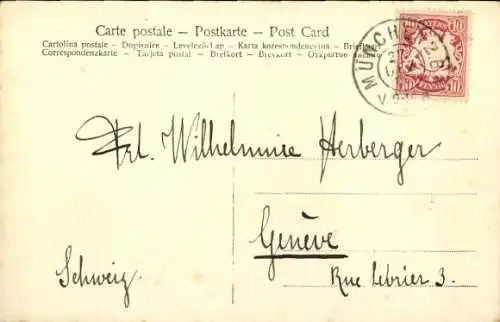 Carte postale – Postkarte – Post Card
Cartolina postale – Dopisnice – Levelező-Lap – Karta korespondencyjna – Briefkaart
Correspondenzkarte – Tarjeta postal – Brefkort – Brevkort –
MÜNCHEN
BAYERN
10 10
PFENNIG
Frl. Wilhelmine Herberger
Genève
Schweiz.
Rue Lévrier 3.